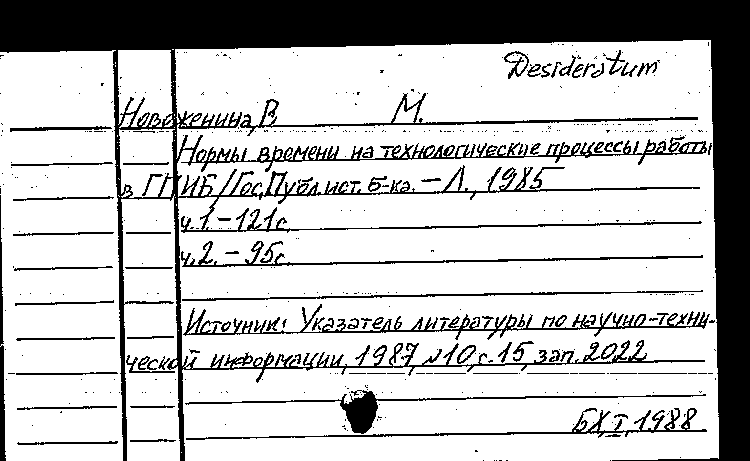 Desideratum
Новоженина, В М.
Нормы времени на технологические процессы работы
в ГПИБ / Гос. Публ. ист. б-ка. – Л., 1985
ч. 1. – 121 с.
ч. 2. – 95 с.
Источник: Указатель литературы по научно-техни-
ческой информации, 1987, №10, с. 15, зап. 2022
БХ, I, 1988